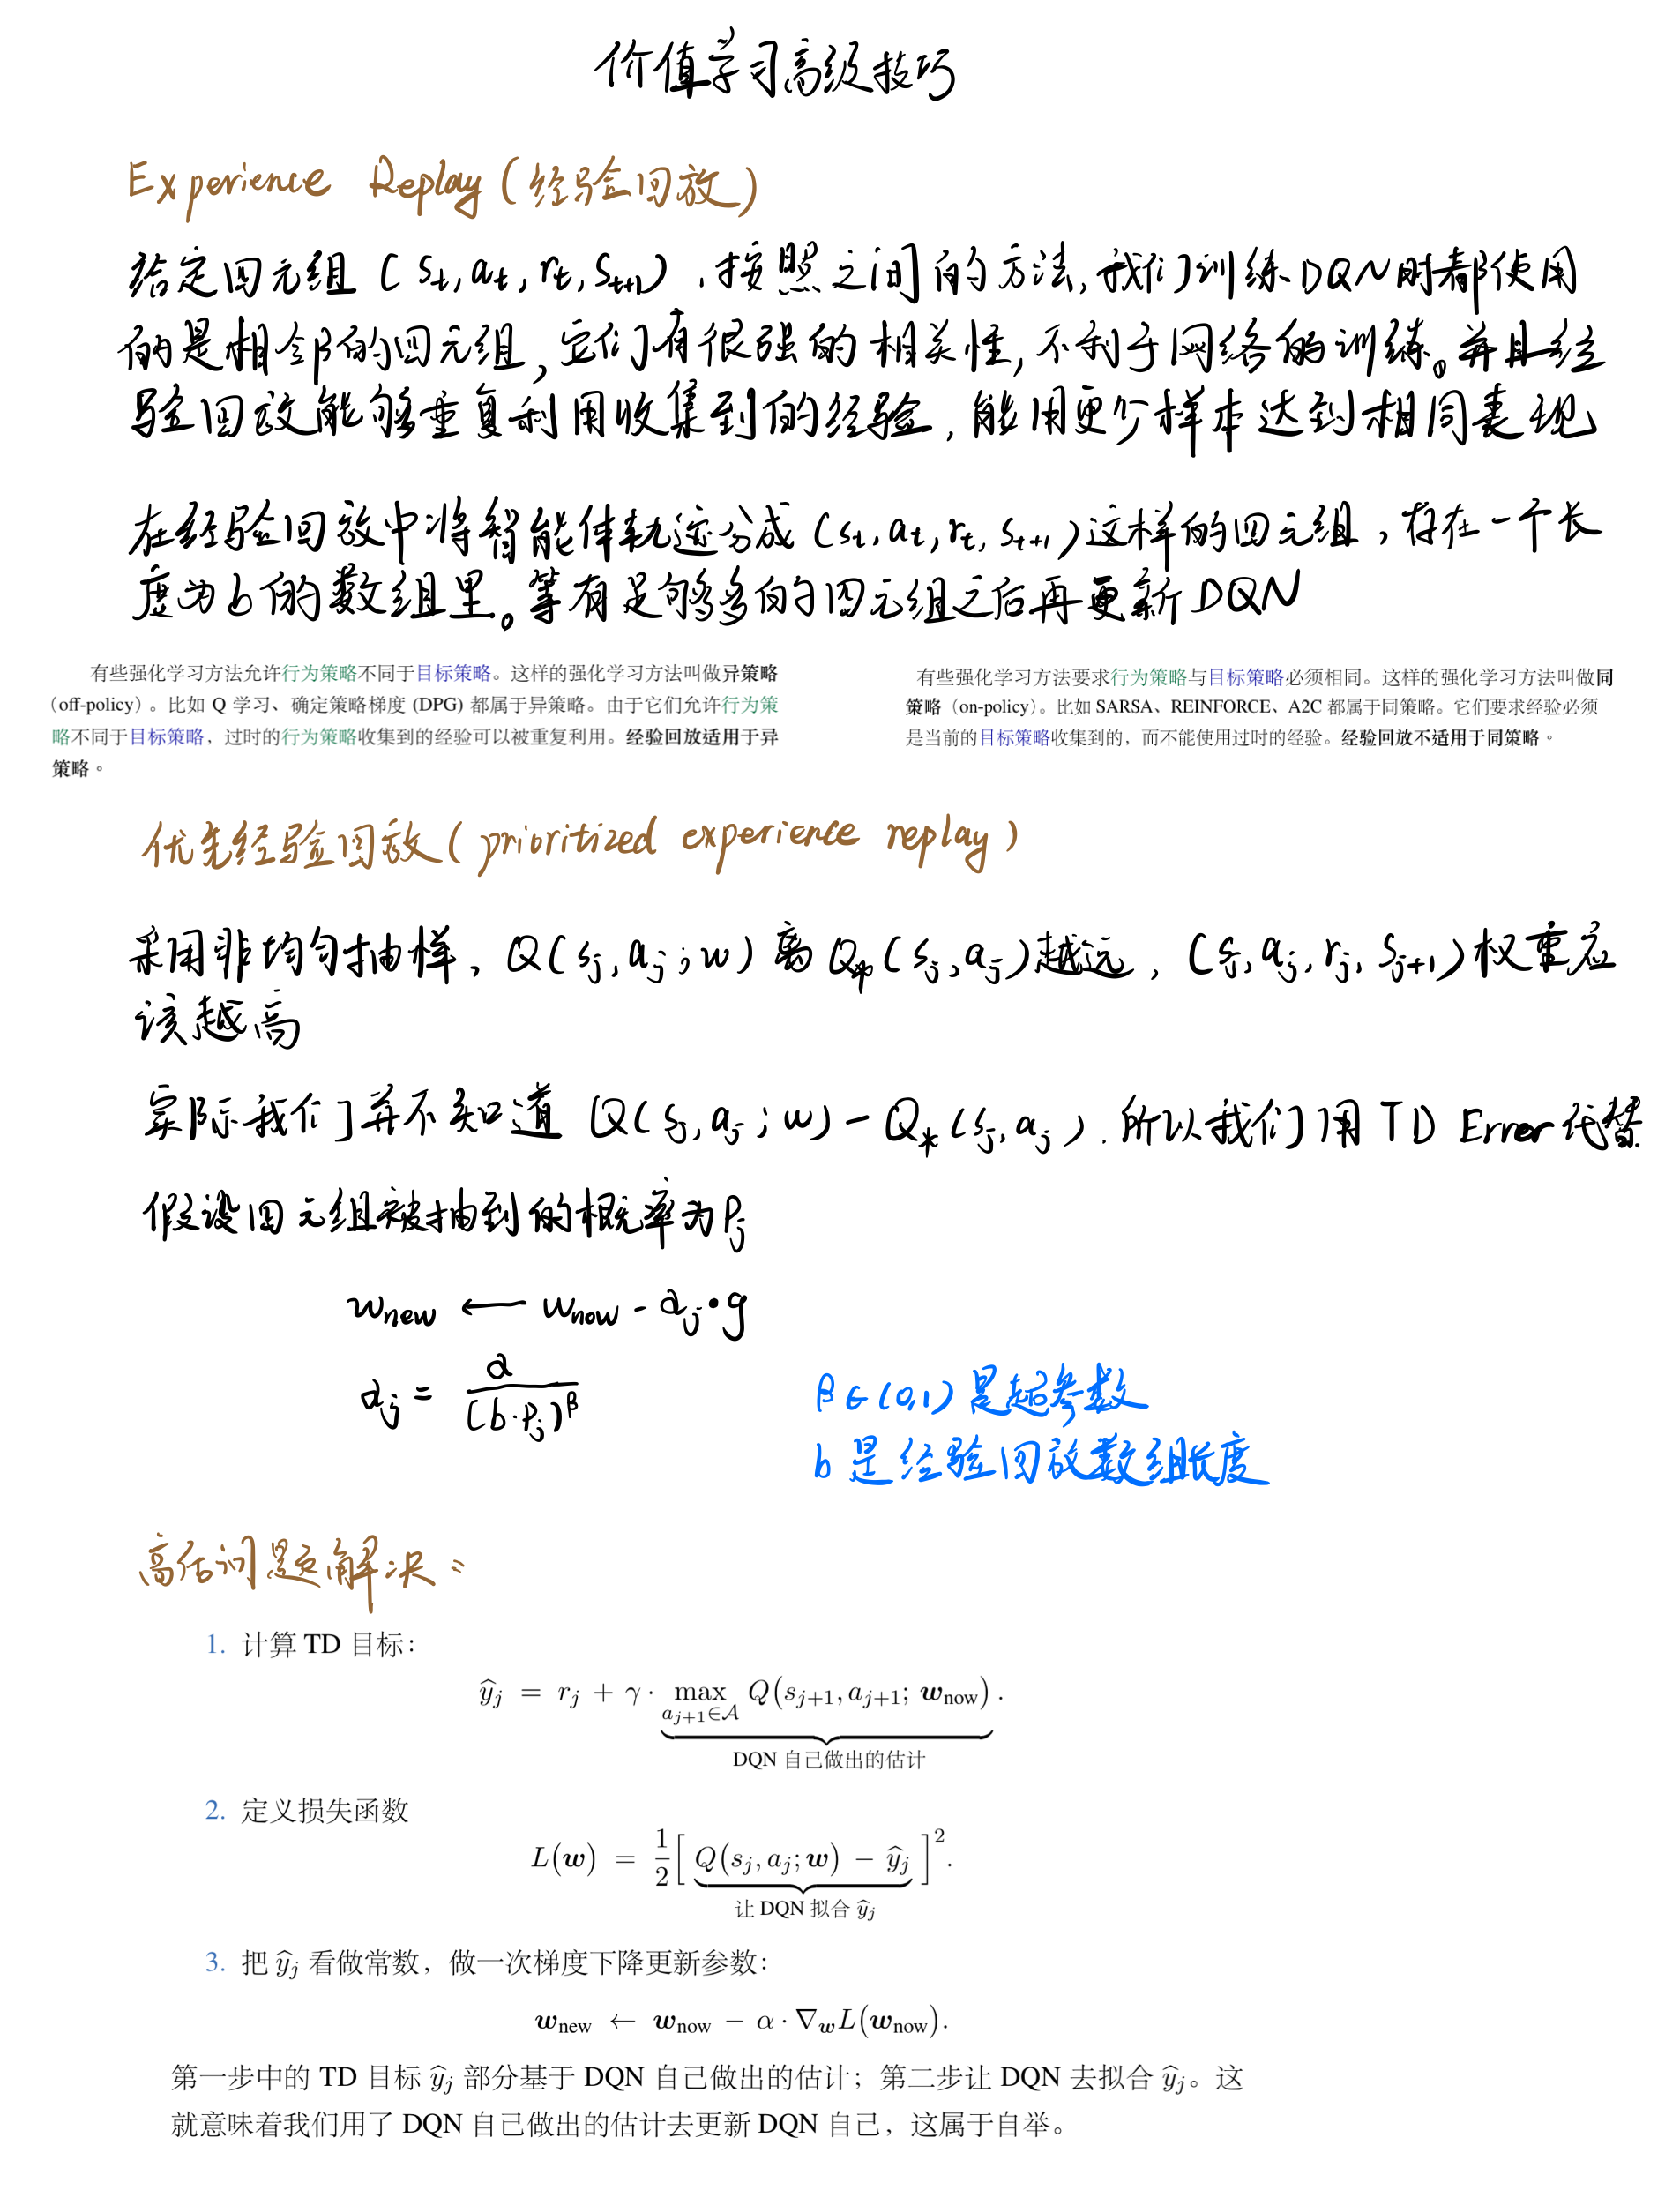 价值学习高级技巧
Experience Replay (经验回放)
给定四元组 (s_t, a_t, r_t, s_{t+1}), 按照之间的方法, 我们训练DQN时都使用
的是相邻的四元组, 它们有很强的相关性, 不利于网络的训练。并且经
验回放能够重复利用收集到的经验, 能用更少样本达到相同表现
在经验回放中将智能体轨迹分成 (s_t, a_t, r_t, s_{t+1}) 这样的四元组, 存在一个长
度为b的数组里。等有足够多的四元组之后再更新DQN
有些强化学习方法允许行为策略不同于目标策略。这样的强化学习方法叫做异策略
(off-policy)。比如 Q 学习、确定策略梯度 (DPG) 都属于异策略。由于它们允许行为策
略不同于目标策略, 过时的行为策略收集到的经验可以被重复利用。经验回放适用于异
策略。
有些强化学习方法要求行为策略与目标策略必须相同。这样的强化学习方法叫做同
策略 (on-policy)。比如 SARSA、REINFORCE、A2C 都属于同策略。它们要求经验必须
是当前的目标策略收集到的, 而不能使用过时的经验。经验回放不适用于同策略。
优先经验回放 (prioritized experience replay)
采用非均匀抽样, Q(s_j, a_j; w) 离 Q_*(s_j, a_j) 越远, (s_j, a_j, r_j, s_{j+1}) 权重应
该越高
实际我们并不知道 Q(s_j, a_j; w) - Q_*(s_j, a_j). 所以我们用 TD Error 代替
假设四元组被抽到的概率为 P_j
w_new ← w_now - α_j · g
α_j = α / (b·P_j)^β
β ∈ (0,1) 是超参数
b 是经验回放数组长度
高估问题解决:
1. 计算 TD 目标:
ŷ_j = r_j + γ · max_{a_{j+1}∈𝒜} Q(s_{j+1}, a_{j+1}; w_now).
DQN 自己做出的估计
2. 定义损失函数
L(w) = 1/2 [ Q(s_j, a_j; w) − ŷ_j ]^2.
让 DQN 拟合 ŷ_j
3. 把 ŷ_j 看做常数, 做一次梯度下降更新参数:
w_new ← w_now − α · ∇_w L(w_now).
第一步中的 TD 目标 ŷ_j 部分基于 DQN 自己做出的估计; 第二步让 DQN 去拟合 ŷ_j。这
就意味着我们用了 DQN 自己做出的估计去更新 DQN 自己, 这属于自举。